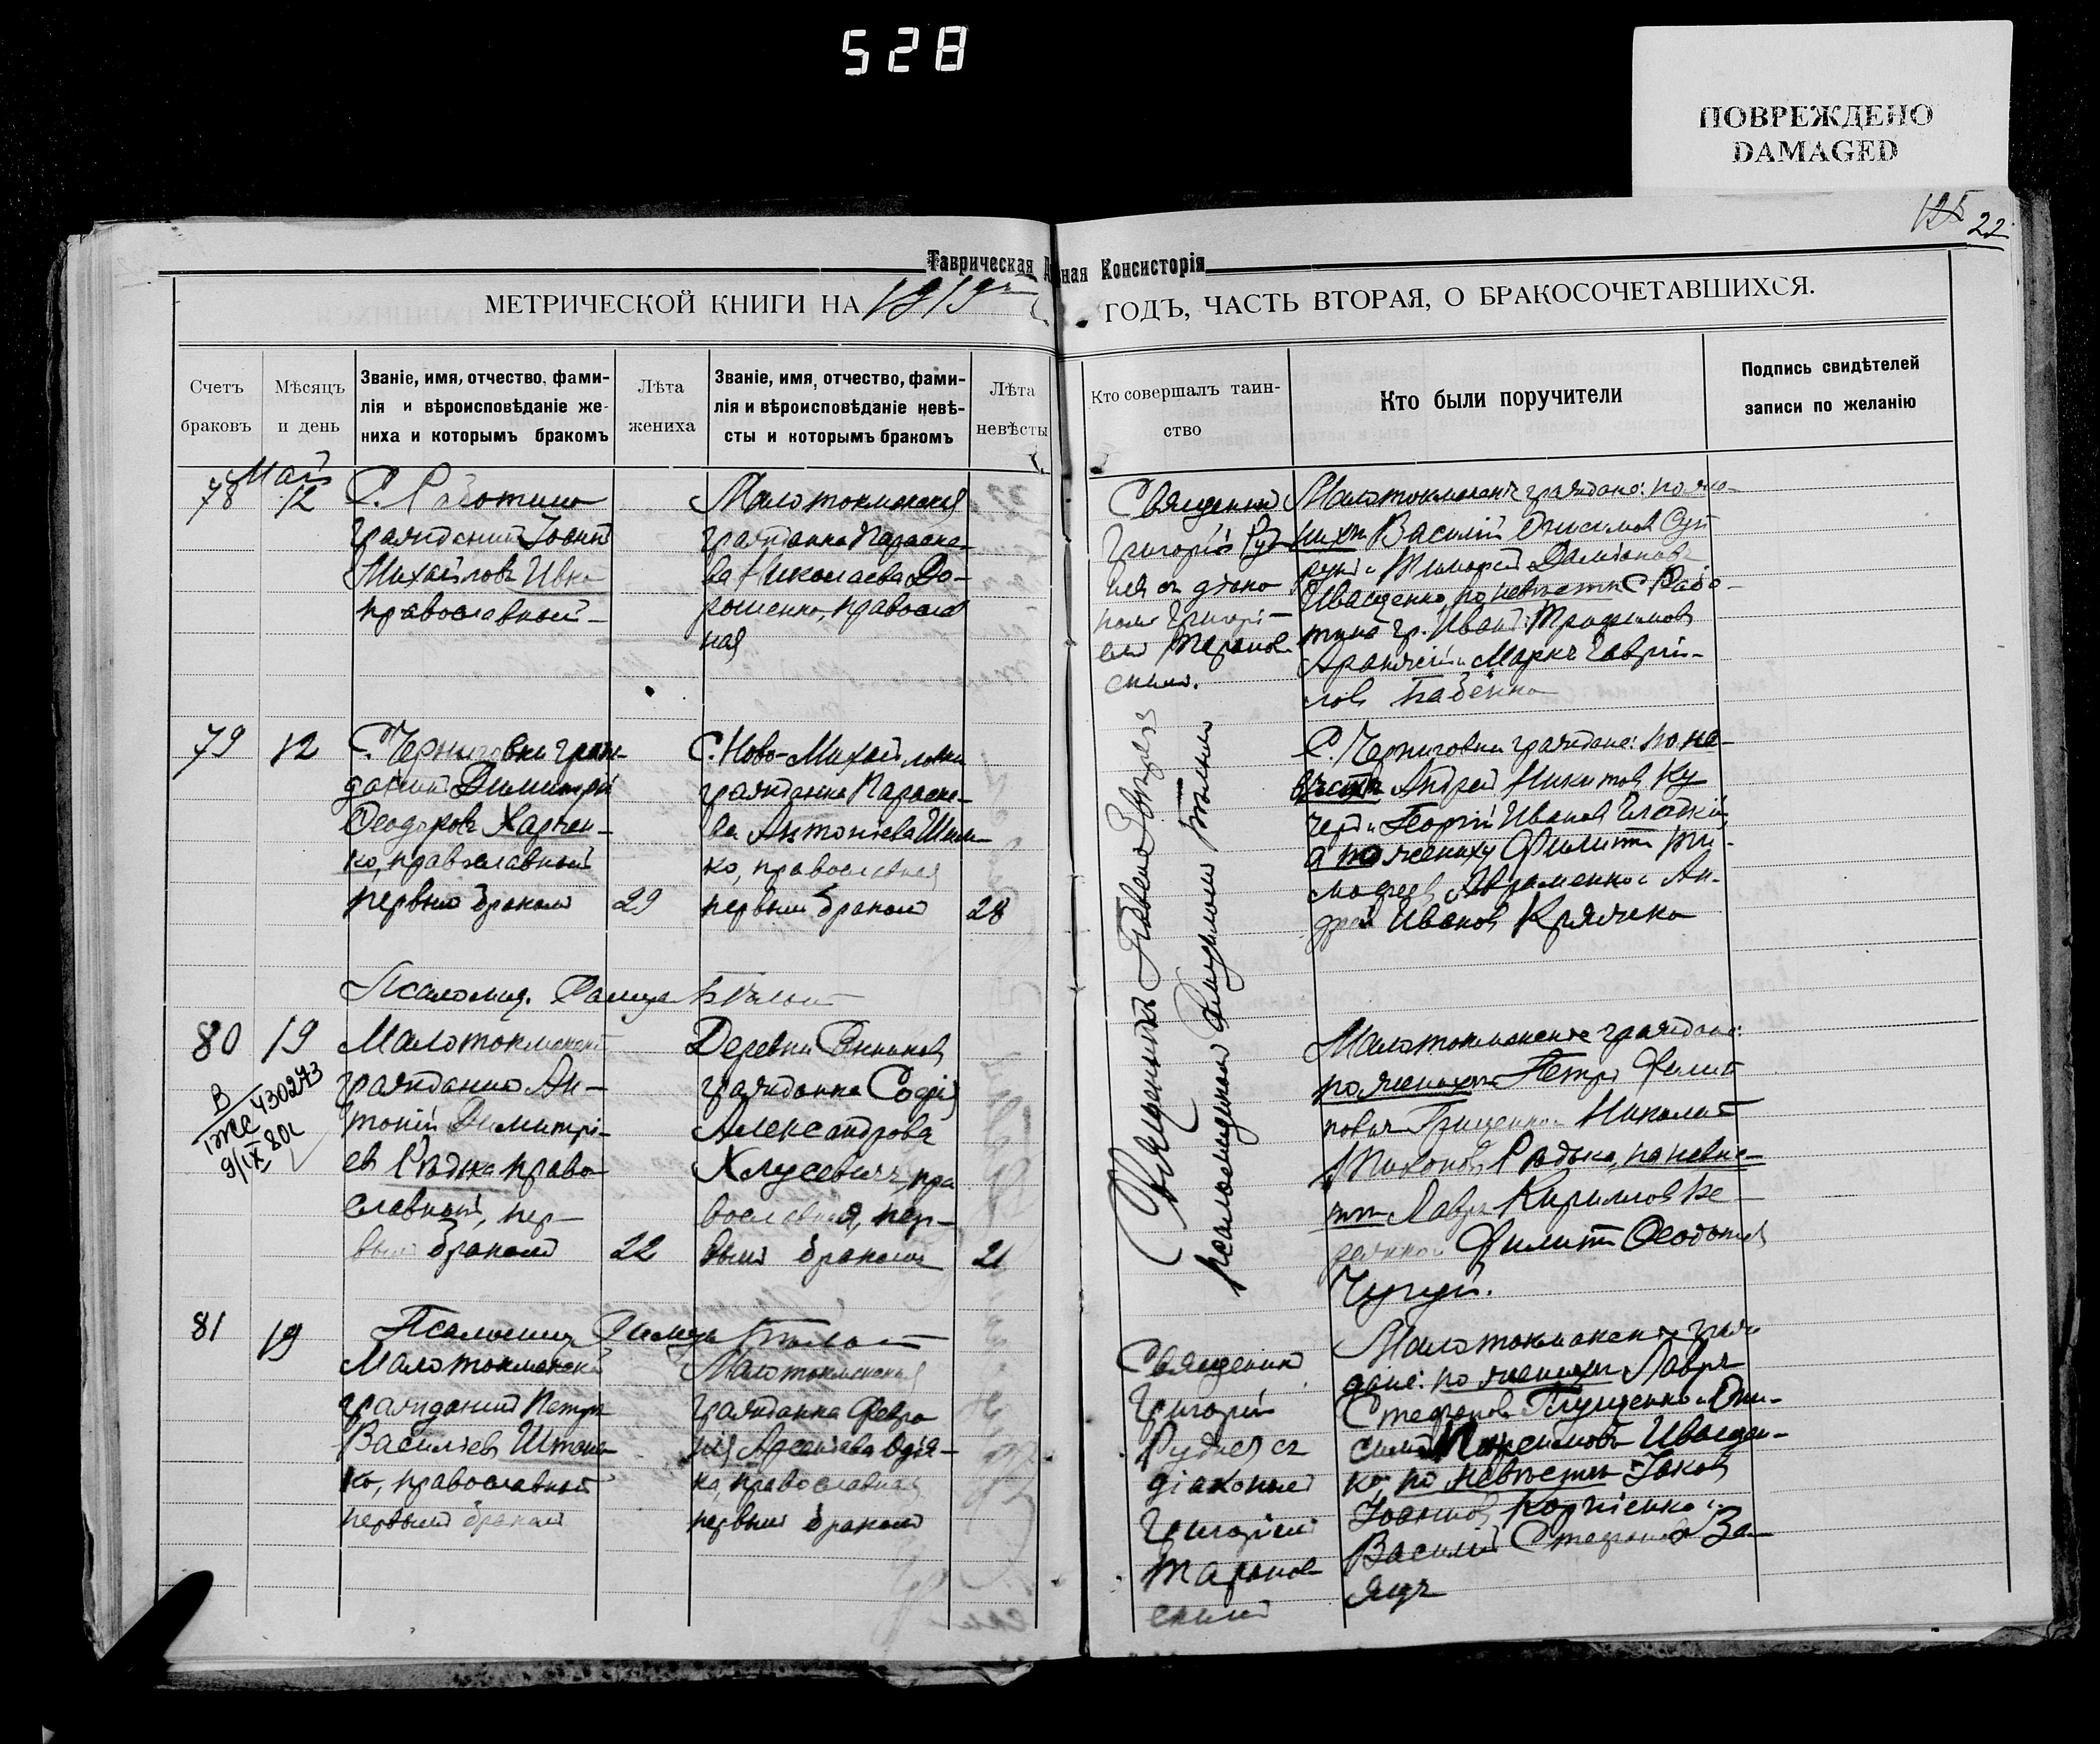 528
ПОВРЕЖДЕНО
DAMAGED
22
Таврическая
ная Консисторія
МЕТРИЧЕСКОЙ КНИГИ НА 1919
ГОДЪ, ЧАСТЬ ВТОРАЯ, О БРАКОСОЧЕТАВШИХСЯ.
Счетъ браковъ
Мѣсяцъ и день
Званіе, имя, отчество, фами-
лія и вѣроисповѣданіе же-
ниха и которымъ бракомъ
Лѣта жениха
Званіе, имя, отчество, фами-
лія и вѣроисповѣданіе невѣ-
сты и которымъ бракомъ
Лѣта невѣсты
Кто совершалъ таин-
ство
Кто были поручители
Подпись свидѣтелей
записи по желанію
Май
78
12
гражданинъ Іоаннъ
Михайловъ Ивко
православный
Малотокмакская
гражданка Параске-
ва Николаева До-
рошенко, православ
ная
Священникъ
Григорій Руд
нев съ діако
номъ Григорі-
емъ Таранов
скимъ.
Малотокмакскіе граждане: по же-
нихѣ Василій
Тимофей Даміановъ
Иващенко, по невѣстѣ С. Рабо-
тина гр. Иванъ Трофимовъ
Маркъ Гаврiи-
ловъ Бабенко
79
12
С. Черниговки граж-
данинъ Димитрій
Ѳеодоровъ Харчен-
ко, православный
первымъ бракомъ
29
С. Ново-Михайловки
гражданка Параске-
ва Антоніева
ко, православная
первымъ бракомъ
28
С. Черниговки граждане: по не-
вѣстѣ Андрей Никитовъ Ку
черъ и Георгій Ивановъ Гладкій
а по жениху Филиппъ Ти-
мофеевъ Авраменко и Ан-
дрей Ивановъ Крячко
Псаломщ.
80
19
В
ІЖС 430273
9/IX 80г
Малотокмакскій
гражданинъ Ан-
тоній Димитрі-
евъ Рѣдька право-
славный, пер-
вымъ бракомъ
22
Деревни
гражданка Софія
Александрова
Хлусевичъ, пра
вославная, пер-
вымъ бракомъ
21
Священникъ
псаломщикъ
Малотокмакскіе граждане:
по женихѣ Петръ Филип
повичъ Гриценко и Николай
Тихоновъ Рѣдька, по невѣс-
тѣ Лавръ Кирилловъ Ве
Филиппъ Ѳеодотовъ
Чугуй.
81
19
Псаломщ.
Малотокмакскій
гражданинъ Петръ
Васильевъ Штань-
ко, православный
первымъ бракомъ
Малотокмакская
гражданка Февро
нія Арсеніева
ка, православная
первымъ бракомъ
Священникъ
Григорій
Руднев съ
діакономъ
Григоріемъ
Таранов
скимъ
Малотокмакскіе граж
дане: по женихѣ Лавръ
Стефановъ Глущенко и Они-
симъ Иващен-
ко, по невѣстѣ Іаковъ
Іоанновъ Корніенко и
Василій Стефановъ За-
яцъ